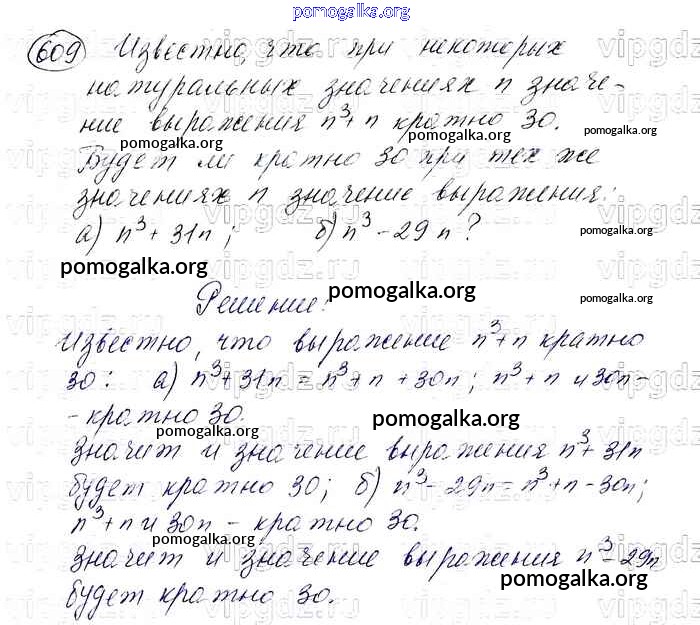 pomogalka.org
609 Известно, что при некоторых
натуральных значениях n значе-
ние выражения n³+n кратно 30.
pomogalka.org
pomogalka.org
Будет ли кратно 30 при тех же
значениях n значение выражения:
pomogalka.org
а) n³+31n; б) n³-29n?
pomogalka.org
Решение:
pomogalka.org
pomogalka.org
Известно, что выражение n³+n кратно
30: а) n³+31n = n³+n+30n; n³+n и 30n-
- кратно 30.
pomogalka.org
pomogalka.org
Значит и значение выражения n³+31n
будет кратно 30; б) n³-29n=n³+n-30n;
n³+n и 30n - кратно 30.
pomogalka.org
pomogalka.org
Значит и значение выражения n³-29n
pomogalka.org
будет кратно 30.